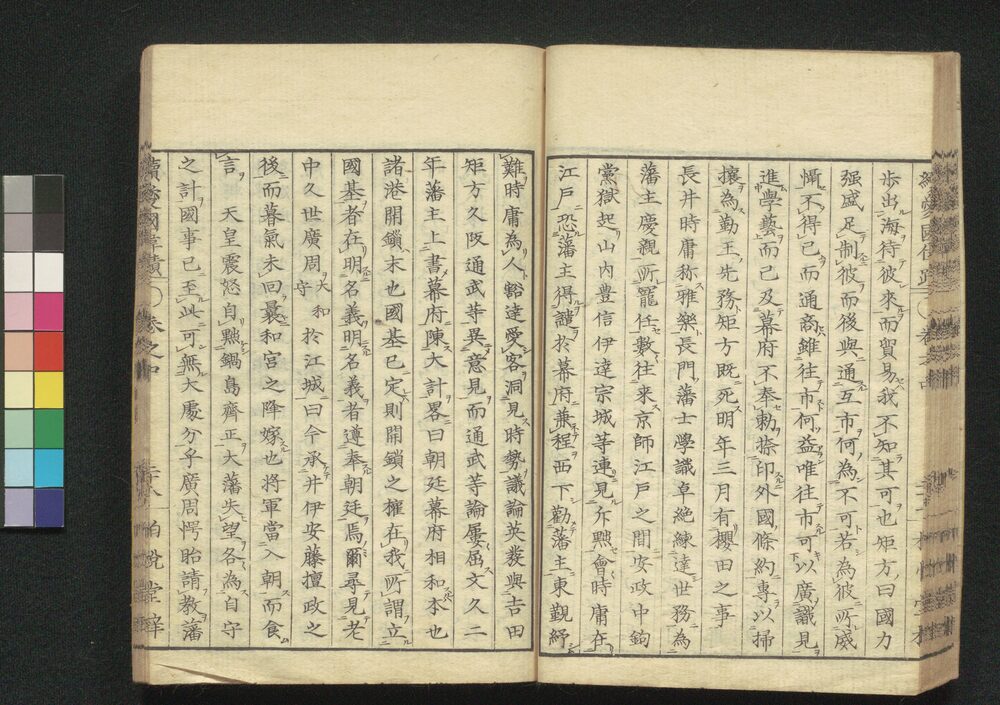 步出海待彼來而貿易我不知其可也矩方曰國力
强盛足制彼而後與通互市何為不可若為彼所威
懾不得已而通商雖往市何益唯往市可以廣識見
進學藝而已及幕府不奉勅捺印外國條約專以掃
攘為勤王先務矩方既死明年三月有櫻田之事
長井時庸称雅樂長門藩士學識卓絶練達世務為
藩主慶親所寵任數往來京師江戸之間安政中鉤
黨獄起山内豊信伊達宗城等連見斥黜會時庸在
江戸恐藩主得譴於幕府兼程西下勸藩主東覲紓
難時庸為人豁達愛客洞見時勢議論英發與吉田
矩方久阪通武等異意見而通武等論屢屈文久二
年藩主上書幕府陳大計畧曰朝廷幕府相和本也
諸港開鎖末也國基已定則開鎖之權在我所謂立
國基者在明名義明名義者遵奉朝廷焉爾尋見老
中久世廣周大和守於江城曰今承井伊安藤擅政之
後而暮氣未回曩和宮之降嫁也将軍當入朝而食
言 天皇震怒自黜鍋島齊正大藩失望各為自守
之計國事已至此可無大處分乎廣周愕眙請教藩
卷之四